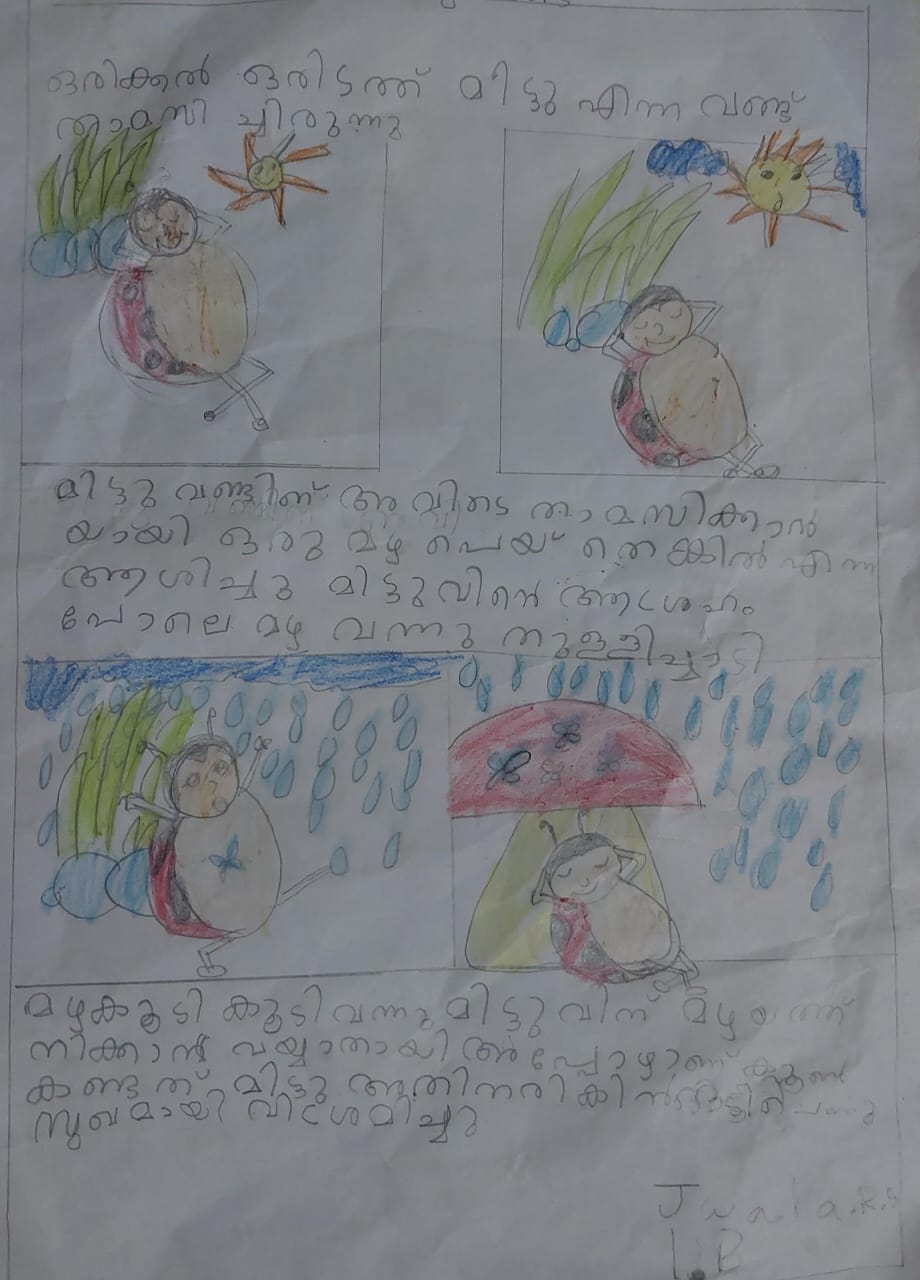 ഒരിക്കൽ ഒരിടത്ത് മിട്ടു എന്ന വണ്ട്
താമസി ച്ചിരുന്നു
മിട്ടു വണ്ടിന് അവിടെ താമസിക്കാൻ
യായി ഒരു മഴ പെയ് തെങ്കിൽ എന്ന
ആശിച്ചു മിട്ടുവിൻെ ആഗ്രഹം
പോലെ മഴ വന്നു തുള്ളിച്ചാടി
മഴകൂടി കൂടിവന്നു മിട്ടുവിന് മഴയത്ത്
നിക്കാൻ വയ്യാതായി അപ്പോഴാണ്
കണ്ടത് മിട്ടു അതിനരികിൽ
സുഖമായി വിശ്രമിച്ചു
Jwala.R.S
1.B